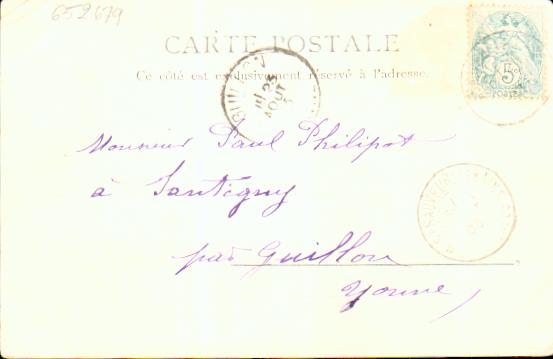 652679
CARTE POSTALE
Ce côté est exclusivement réservé à l'adresse.
GUILLON
25
AOUT
5c
POSTES
Monsieur Paul Philipot
à Santigny
par Guillon
Yonne